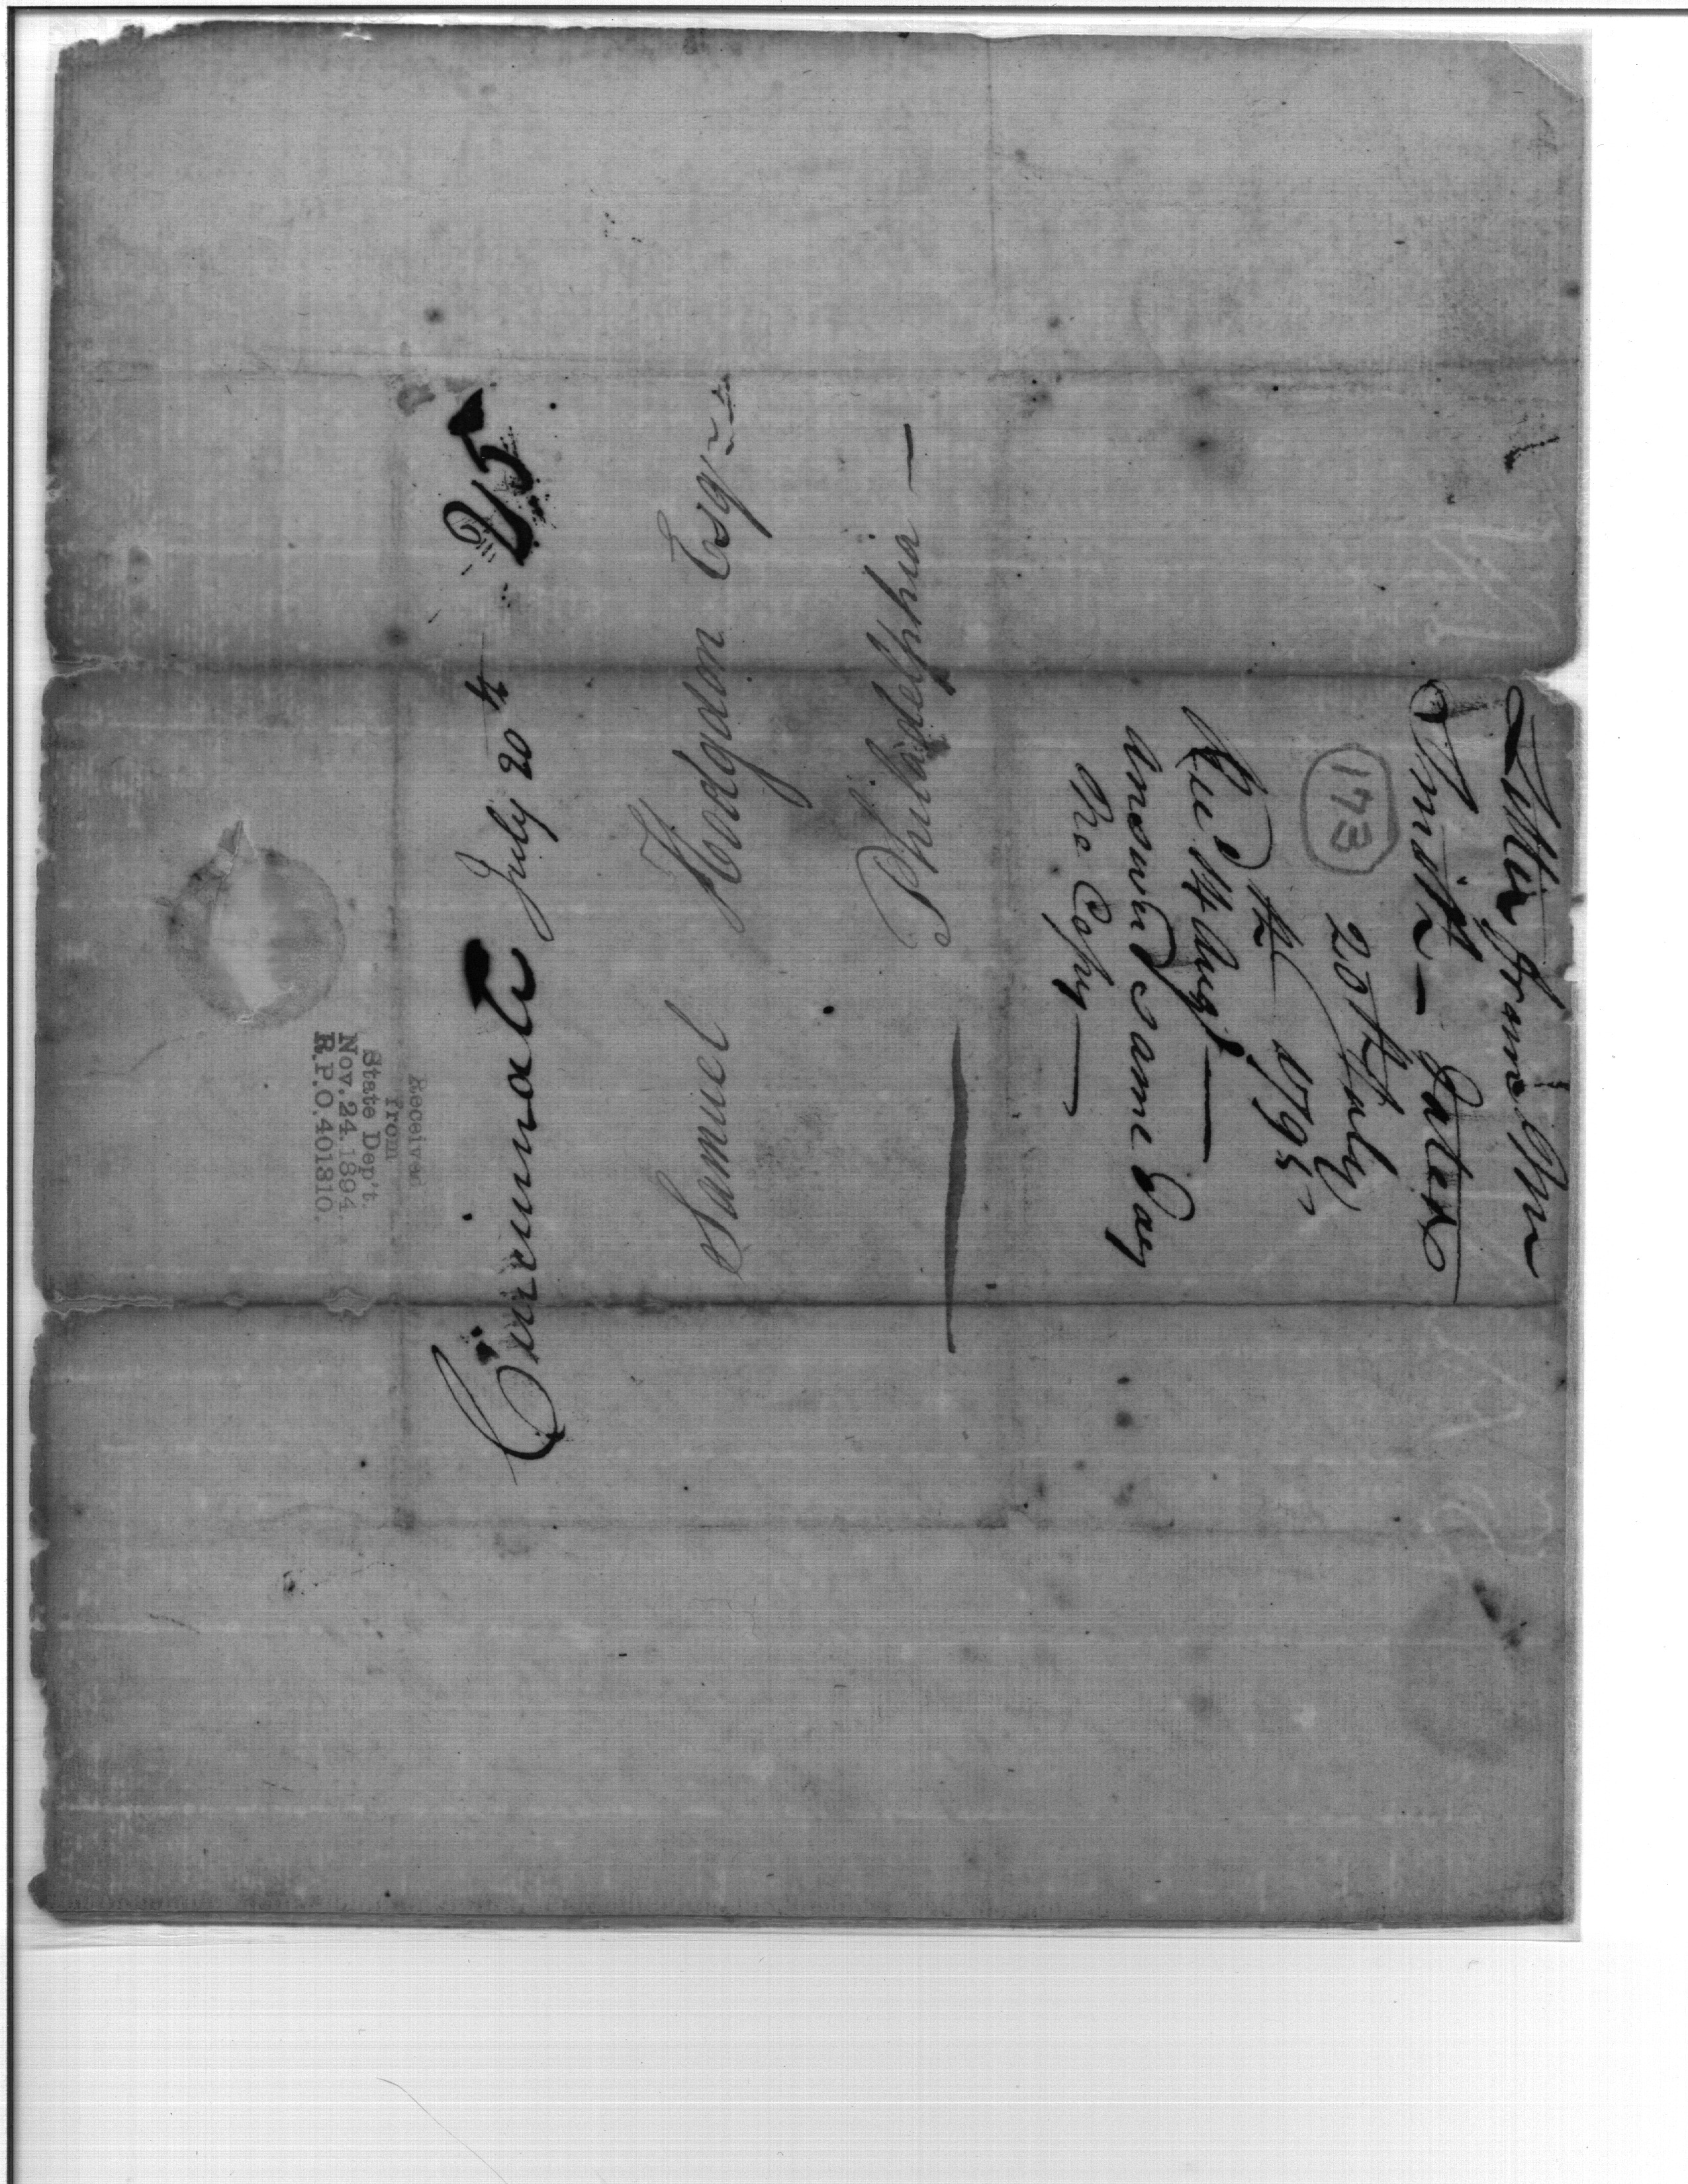 Cincinnati July 20th 25
Samuel Hodgdon Esqre
Philadelphia —
Letter from Wm
Smith — Dated
20th July
173
1795
Recd 14 Augt —
Answered same Day
No Copy —
Received
from
State Dep't.
Nov. 24. 1894.
R. P. O. 401810.